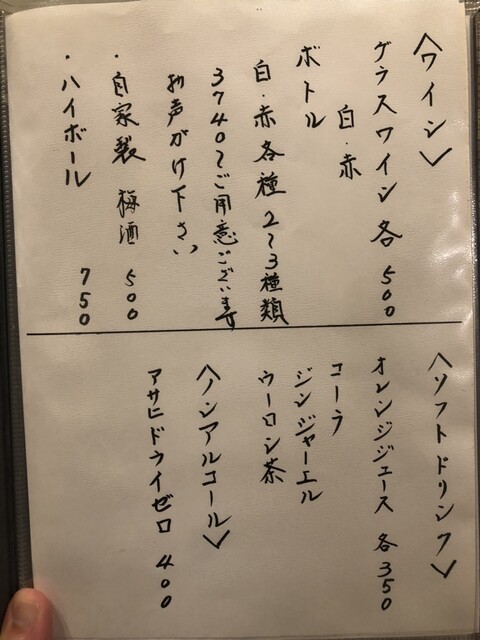 〈ワイン〉
グラスワイン 各 500
白・赤
ボトル
白・赤各種 2〜3種類
3740〜ご用意ございます
お声がけ下さい
・自家製 梅酒 500
・ハイボール 750
〈ソフトドリンク〉
オレンジジュース 各350
コーラ
ジンジャーエル
ウーロン茶
〈ノンアルコール〉
アサヒドライゼロ 400